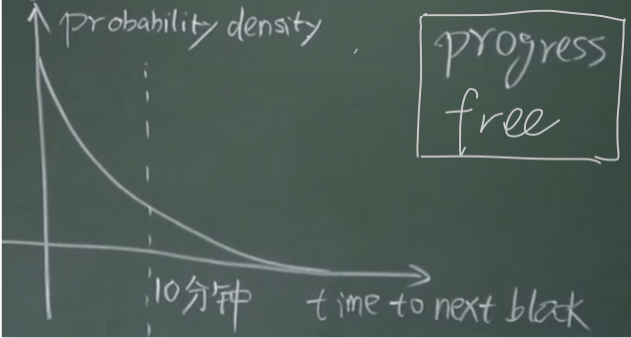 probability density
progress
free
10分钟
time to next block